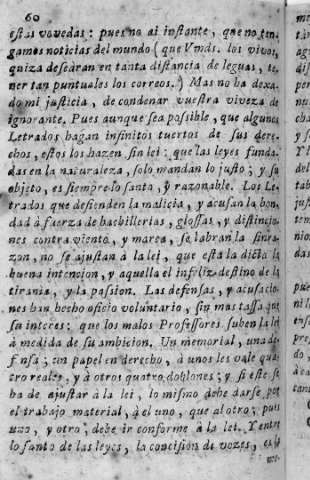 60
estas vovedas: pues no ai instante, que no ten-
gamos noticias del mundo (que Vmds. los vivos,
quiza desearan en tanta distancia de leguas, te-
ner tan puntuales los correos.) Mas no ha dexa-
do mi justicia, de condenar vuestra viveza de
ignorante. Pues aunque sea possible, que algunos
Letrados hagan infinitos tuertos de sus dere-
chos, estos los hazen sin lei: que las leyes funda-
das en la naturaleza, solo mandan lo justo; y su
objeto, es siempre lo santo, y razonable. Los Le-
trados que defienden la malicia, y acusan la bon-
dad à fuerza de bachillerias, glossas, y distincio-
nes contra viento, y marea, se labran la sinra-
zon, no se ajustan à la lei, que està la dicta la
buena intencion, y aquella el infeliz destino de la
tirania, y la passion. Las defensas, y acusacio-
nes han hecho oficio voluntario, sin mas tassa que
su interes: que los malos Professores suben la lei
à medida de su ambicion. Un memorial, una de-
fensa; un papel en derecho, à unos les vale qua-
tro reales, y à otros quatro doblones; y si este se
ha de ajustar à la lei, lo mismo debe darse por
el trabajo material, à el uno, que al otro; pues
uno, y otro, debe ir conforme à la lei. Y entre
lo santo de las leyes, la concision de vozes,